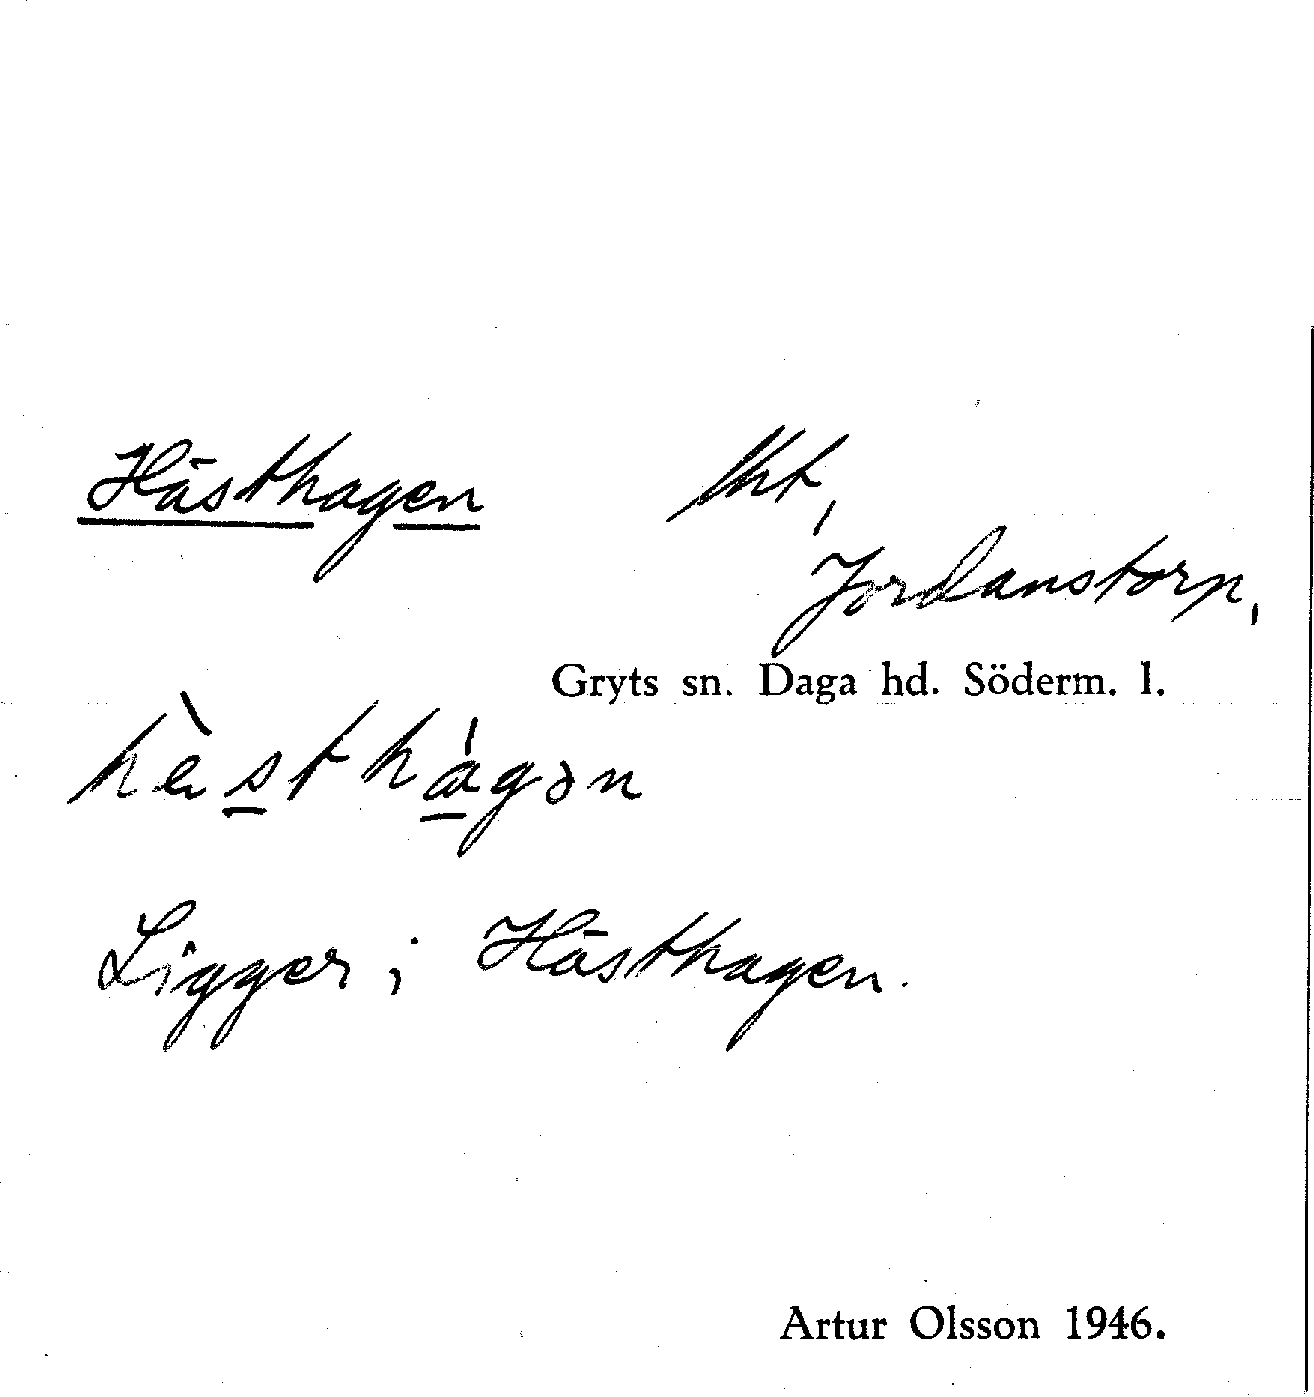 Hästhagen lht,
Jordanstorp,
Gryts sn. Daga hd. Söderm. l.
Ligger i Hästhagen.
Artur Olsson 1946.